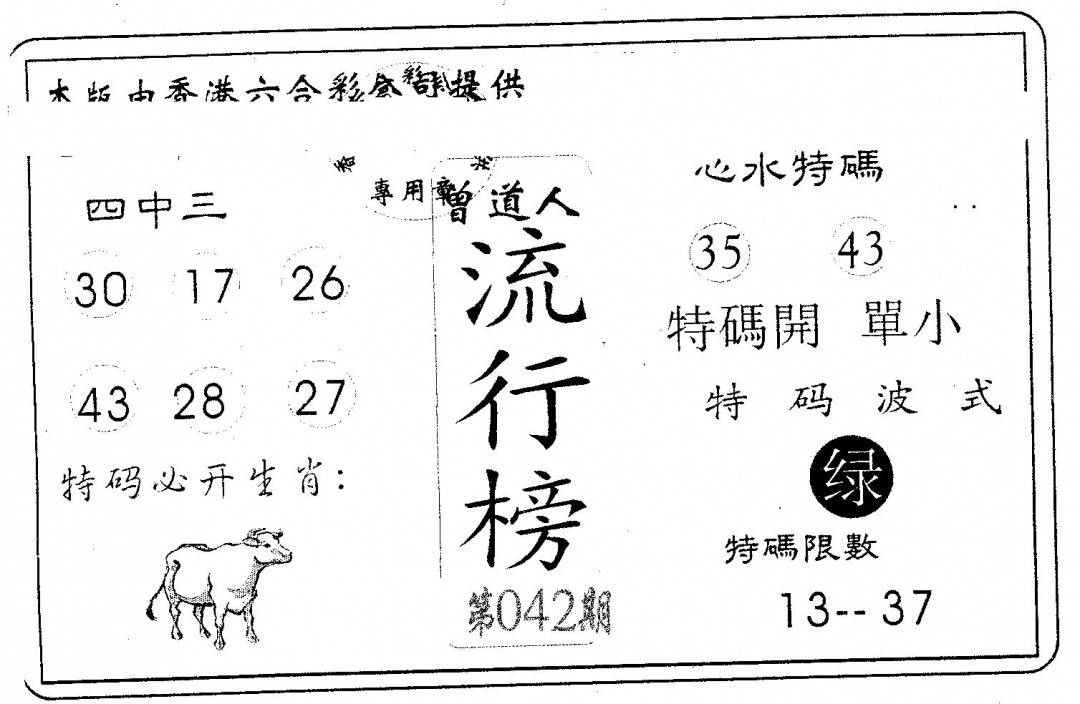 本版由香港六合彩
提供
專用章
四中三
30 17 26
43 28 27
特码必开生肖：
曾道人
流行榜
第042期
心水特碼
35 43
特碼開 單小
特码波式
绿
特碼限數
13-- 37